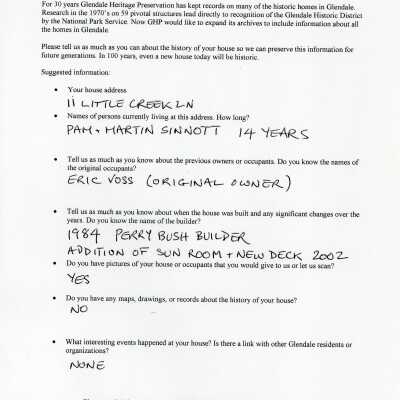 For 30 years Glendale Heritage Preservation has kept records on many of the historic homes in Glendale.
Research in the 1970's on 59 pivotal structures lead directly to recognition of the Glendale Historic District
by the National Park Service. Now GHP would like to expand its archives to include information about all
the homes in Glendale.
Please tell us as much as you can about the history of your house so we can preserve this information for
future generations. In 100 years, even a new house today will be historic.
Suggested information:
• Your house address
11 LITTLE CREEK LN
• Names of persons currently living at this address. How long?
PAM + MARTIN SINNOTT 14 YEARS
• Tell us as much as you know about the previous owners or occupants. Do you know the names of
the original occupants?
ERIC VOSS (ORIGINAL OWNER)
• Tell us as much as you know about when the house was built and any significant changes over the
years. Do you know the name of the builder?
1984 PERRY BUSH BUILDER
ADDITION OF SUN ROOM + NEW DECK 2002
• Do you have pictures of your house or occupants that you would give to us or let us scan?
YES
• Do you have any maps, drawings, or records about the history of your house?
NO
• What interesting events happened at your house? Is there a link with other Glendale residents or
organizations?
NONE